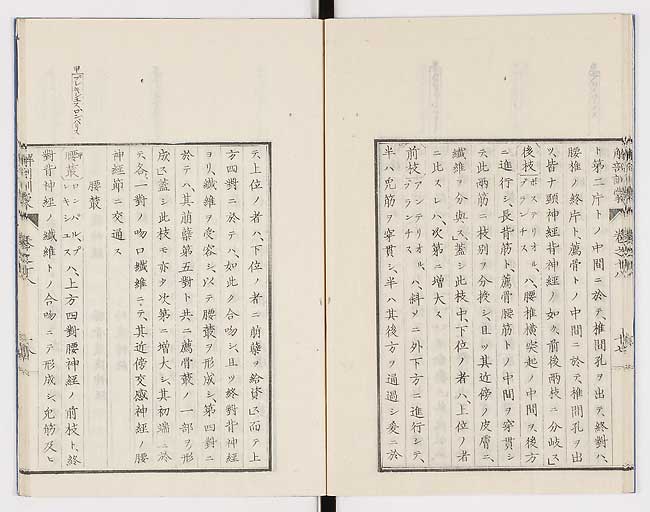 ト第二片トノ中間ニ於テ、椎間孔ヲ出テ、終對ハ、
腰椎ノ終片ト、薦骨トノ中間ニ於テ椎間孔ヲ出
ツ、皆ナ頸神経背神経ノ如ク、前後兩枝ニ分岐ス、
後枝 ポステリオル、ブランチス ハ、腰椎横突起ノ中間ヲ後方
ニ進行シ、長背筋ト、薦骨腰筋トノ中間ヲ穿貫シ
テ、此兩筋ニ枝別ヲ分授シ、且ツ其近傍ノ皮膚ニ、
纖維ヲ分與ス、蓋シ此枝中、下位ノ者ハ、上位ノ者
ニ比スレハ、次第ニ増大ス
前枝 アンテリオル、ブランチス ハ、斜メニ外下方ニ進行シテ、
半ハ皃筋ヲ穿貫シ、半ハ其後方ヲ通過シ、爰ニ於
解剖訓蒙
テ上位ノ者ハ、下位ノ者ニ萠蘖ヲ給資ス、而テ上
方四對ニ於テハ、如此ク合吻シ、且ツ終對背神経
ヨリ、纖維ヲ受容シ、以テ腰叢ヲ形成シ、第四對ニ
於テハ、其萠蘖第五對ト共ニ薦骨叢ノ一部ヲ形
成ス、蓋シ此枝モ亦タ次第ニ増大シ、其初端ニ於
テ、各一對ノ吻口纖維ニテ、其近傍交感神経ノ腰
神経節ニ交通ス
腰叢
腰叢 ロンバル、プレキシュス ハ、上方四對腰神経ノ前枝ト、終
對背神経ノ纖維トノ合吻ニテ形成シ、皃筋及ヒ
解剖訓蒙